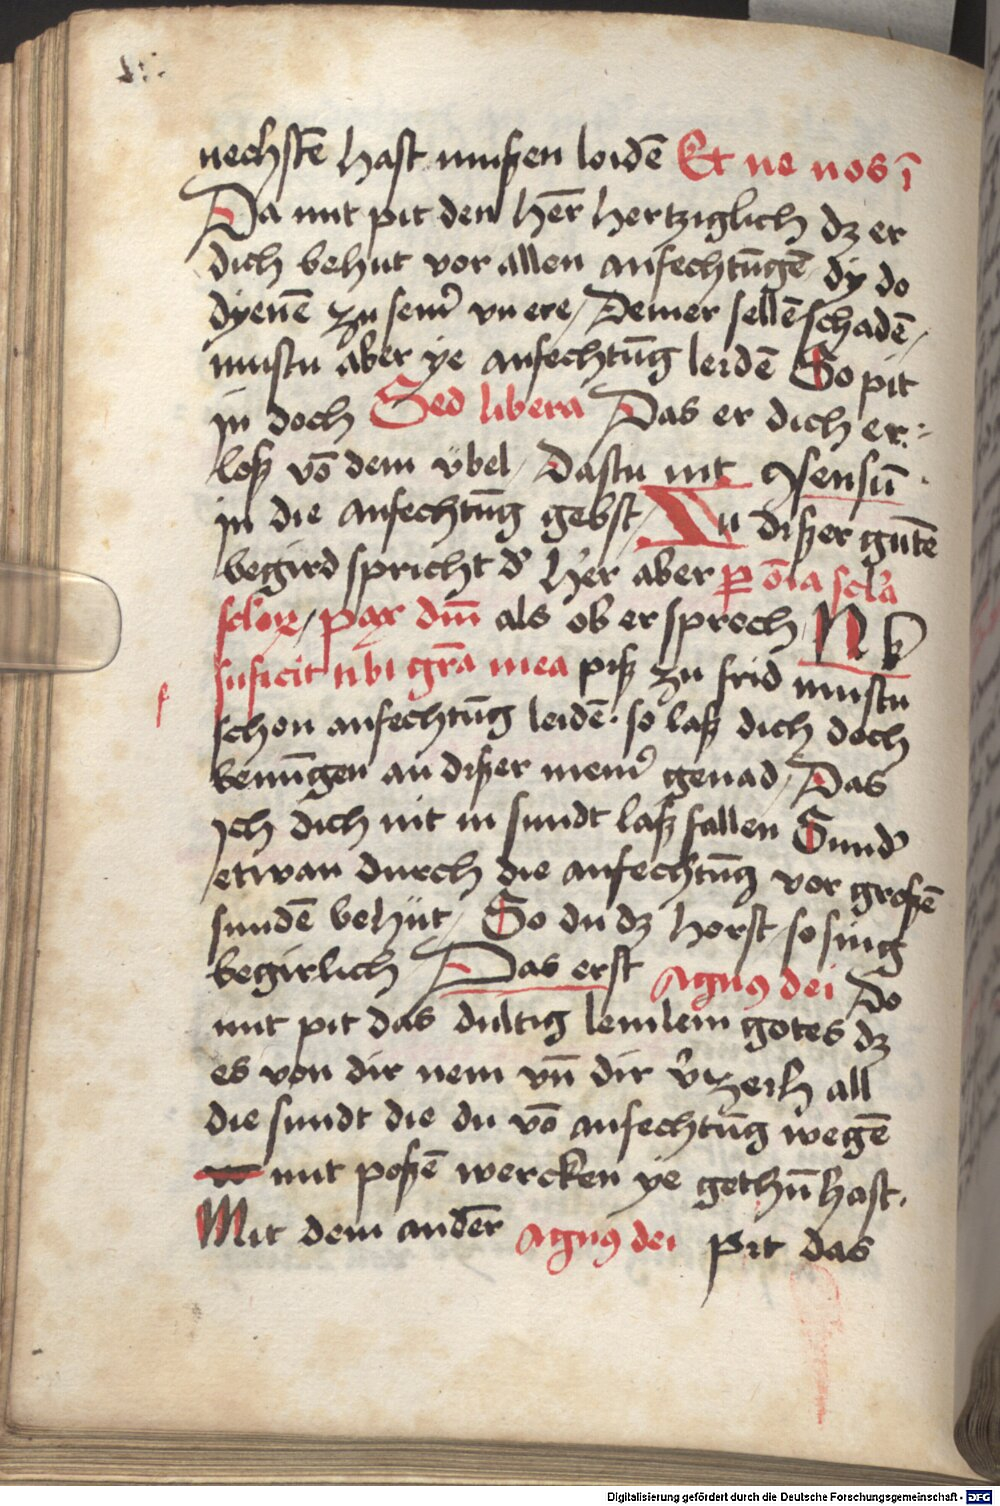 nechstē hast mußen leidē Et ne nos ī
Da mit pit den her̄ hertziglich dz er
dich behut vor allen anfechtūgē dy do
dyenē zu sein̄ vn ere / Deiner sellē schadē /
mustu aber ye anfechtūg leidē So pit
jn doch Sed libera Das er dich er:
loß vō dem vbel / Dastu nit 9sensū
jn die anfechtūg gebst / Zu dißer gutē
begird spricht d' her aber ꝑ oīa scl'a
scl'oꝝ / pax dm̄ als ob er sprech
suficit tibi grā mea piß zu frid mustu
schon anfechtūg leidē · so laß dich doch
benūgen an dißer mein' genad / Das
Ich dich nit in sundt laß fallen Sund'
etwan durch die anfechtūg vor großē
sundē behüt / So du dz horst so sing
begirlich Das erst Agnꝰ dei Do
mit pit das dultig lemlein gotes dz
es von dir nem vn̄ dir v'zeih all
die sundt die du vō anfechtūg wegē
mit poßē wercken ye gethū hast .
Mit dem ander̄ Agnꝰ dei pit das
Digitalisierung gefördert durch die Deutsche Forschungsgemeinschaft - DFG